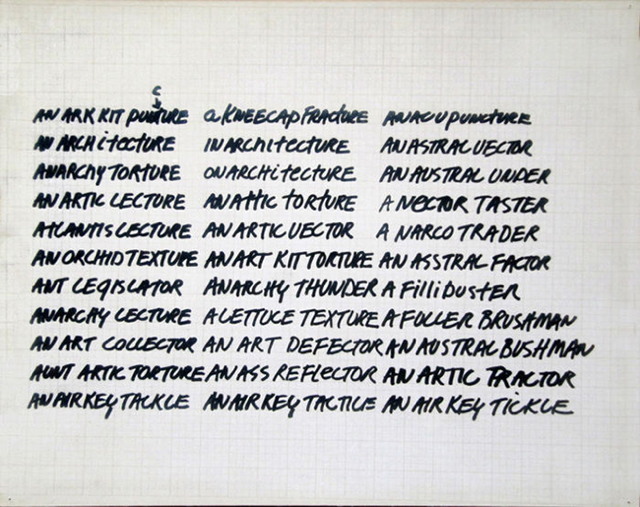 C
AN ARK KIT PUNTURE A KNEECAP FRACTURE AN ACUPUNCTURE
AN ARCHITECTURE IN ARCHITECTURE AN ASTRAL VECTOR
ANARCHY TORTURE ON ARCHITECTURE AN AUSTRAL UNDER
AN ARTIC LECTURE AN ATTIC TORTURE A NECTOR TASTER
ATLANTIS LECTURE AN ARTIC VECTOR A NARCO TRADER
AN ORCHID TEXTURE AN ART KIT TORTURE AN ASSTRAL FACTOR
ANT LEGISLATOR ANARCHY THUNDER A FILLIDUSTER
ANARCHY LECTURE A LETTUCE TEXTURE A FULLER BRUSHMAN
AN ART COLLECTOR AN ART DEFECTOR AN AUSTRAL BUSHMAN
AUNT ARTIC TORTURE AN ASS REFLECTOR AN ARTIC TRACTOR
AN AIR KEY TACKLE AN AIR KEY TACTILE AN AIR KEY TICKLE